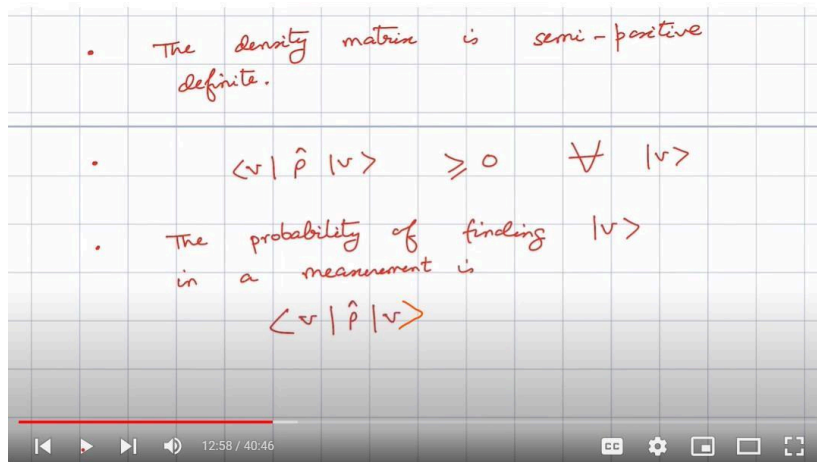 • The density matrix is semi-positive
definite.
• <v| ρ̂ |v> ⩾ 0 ∀ |v>
• The probability of finding |v>
in a measurement is
<v| ρ̂ |v>
12:58 / 40:46
CC